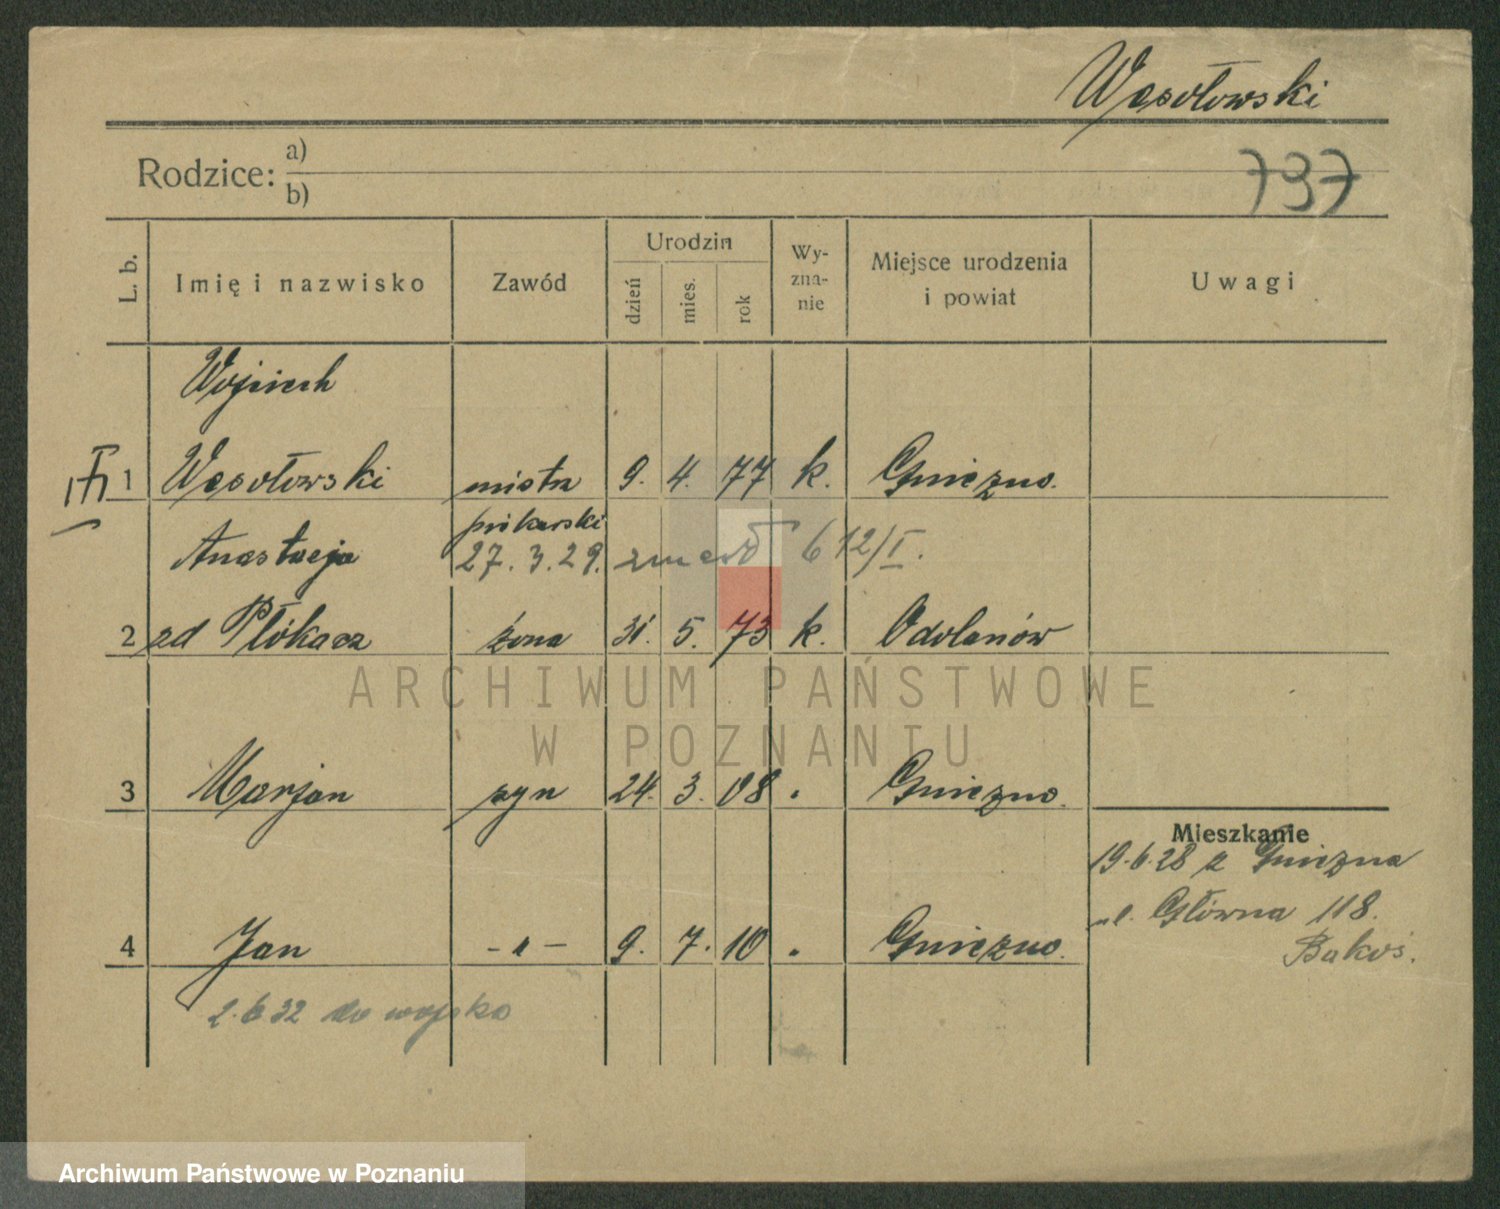 Wesołowski
Rodzice: a)
b)
737
L. b. Imię i nazwisko Zawód Urodzin dzień mies. rok Wy-zna-nie Miejsce urodzenia i powiat Uwagi
Wojciech
III 1 Wesołowski mistrz 9. 4. 77 k. Gniezno.
piekarski
Anastazja 27. 3. 29. zmarł 612/I.
2 zd Płókacz żona 31. 5. 73 k. Odolanów
ARCHIWUM PAŃSTWOWE
W POZNANIU
3 Marjan syn 24. 3. 08 . Gniezno.
Mieszkanie
19.6.28 z Gniezna
ul. Główna 118.
4 Jan -"- 9. 7. 10 . Gniezno.
2.6.32 do wojska
Archiwum Państwowe w Poznaniu